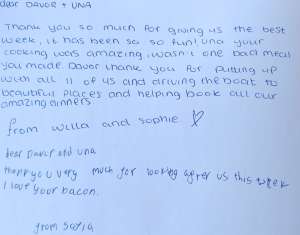 dear DAVOR + UNA
Thank you so much for giving us the best
week, it has been so so fun! una your
cooking was amazing, wasn't one bad meal
you made. Davor thank you for putting up
with all 11 of us and driving the boat to
beautiful places and helping book all our
amazing dinners.
from willa and sophie
dear Davor and una
thank you very much for looking after us this week
I love your bacon.
from